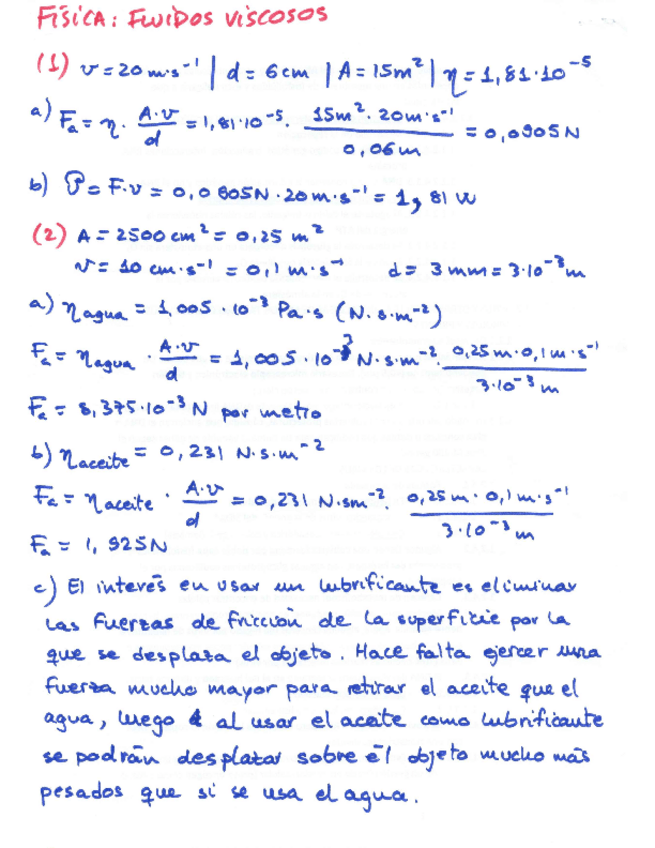 FÍSICA: FLUIDOS VISCOSOS
(1) v = 20 m·s⁻¹ | d = 6 cm | A = 15 m² | η = 1,81·10⁻⁵
a) Fₐ = η · A·v/d = 1,81·10⁻⁵ · 15m² · 20m·s⁻¹/0,06m = 0,0905N
b) P = F·v = 0,0905N · 20m·s⁻¹ = 1,81 W
(2) A = 2500 cm² = 0,25 m²
v = 10 cm·s⁻¹ = 0,1 m·s⁻ d = 3 mm = 3·10⁻³ m
a) η agua = 1,005 · 10⁻³ Pa·s (N·s·m⁻²)
Fₐ = η agua · A·v/d = 1,005 · 10⁻³ N·s·m⁻² · 0,25m · 0,1m·s⁻¹/3·10⁻³ m
Fₐ = 8,375·10⁻³ N por metro
b) η aceite = 0,231 N·s·m⁻²
Fₐ = η aceite · A·v/d = 0,231 N·sm⁻² · 0,25m · 0,1m·s⁻¹/3·10⁻³ m
Fₐ = 1,925N
c) El interés en usar un lubrificante es eliminar
las fuerzas de fricción de la superficie por la
que se desplaza el objeto. Hace falta ejercer una
fuerza mucho mayor para retirar el aceite que el
agua, luego al usar el aceite como lubrificante
se podrán desplazar sobre él objeto mucho más
pesados que si se usa el agua.